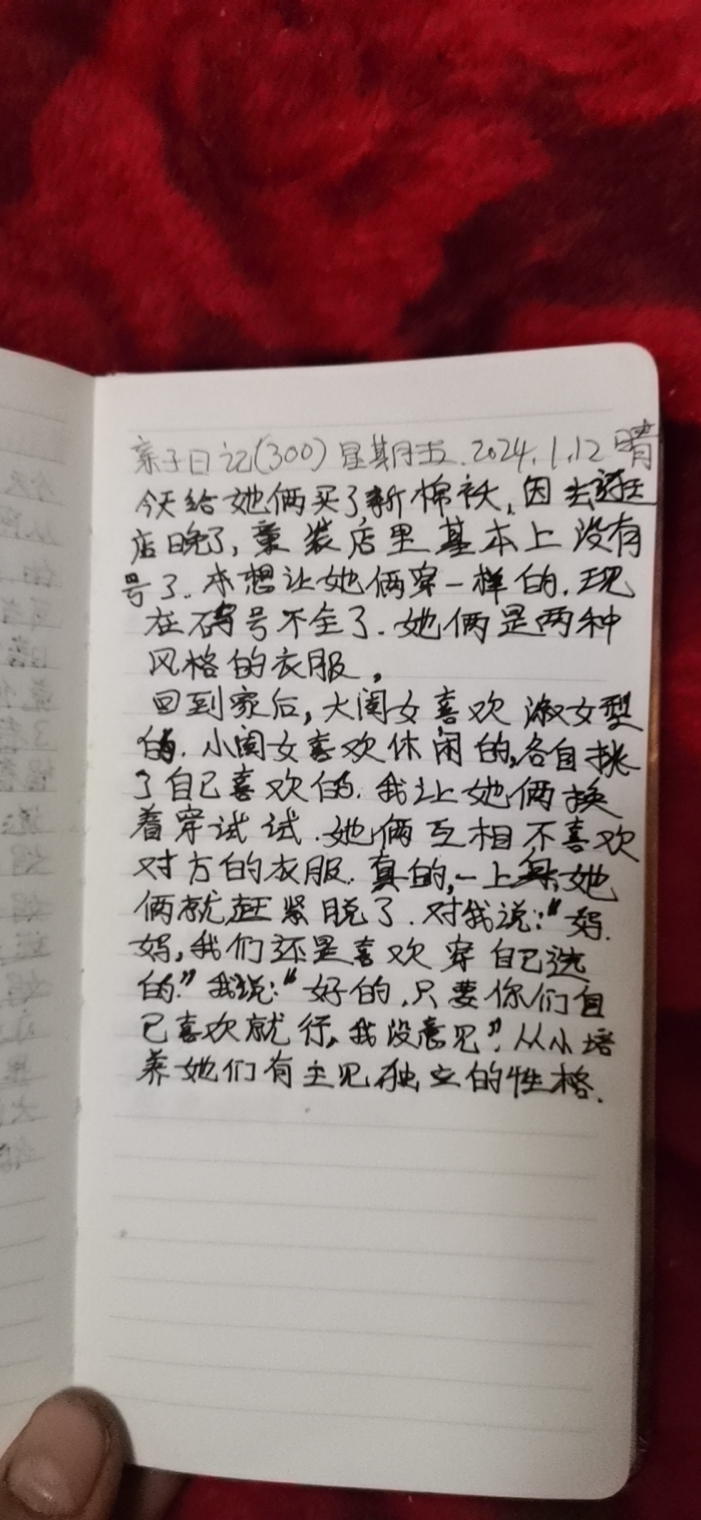 亲子日记(300) 星期五. 2024.1.12 晴
今天给她俩买了新棉袄,因去
店晚了,童装店里基本上没有
号了.本想让她俩穿一样的.现
在码号不全了.她俩是两种
风格的衣服。
回到家后,大闺女喜欢淑女型
的.小闺女喜欢休闲的,各自挑
了自己喜欢的.我让她俩换
着穿试试.她俩互相不喜欢
对方的衣服.真的,一上身,她
俩就赶紧脱了.对我说:“妈.
妈,我们还是喜欢穿自己选
的.”我说:“好的,只要你们自
己喜欢就行,我没意见”.从小培
养她们有主见独立的性格.